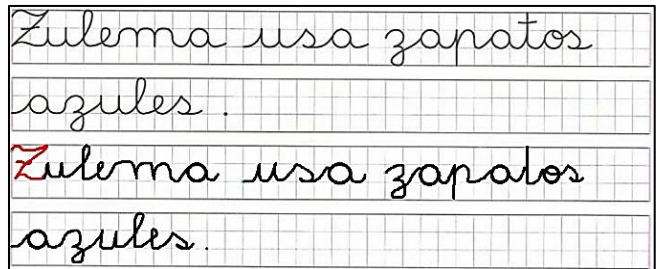 Zulema usa zapatos
azules.
Zulema usa zapatos
azules.